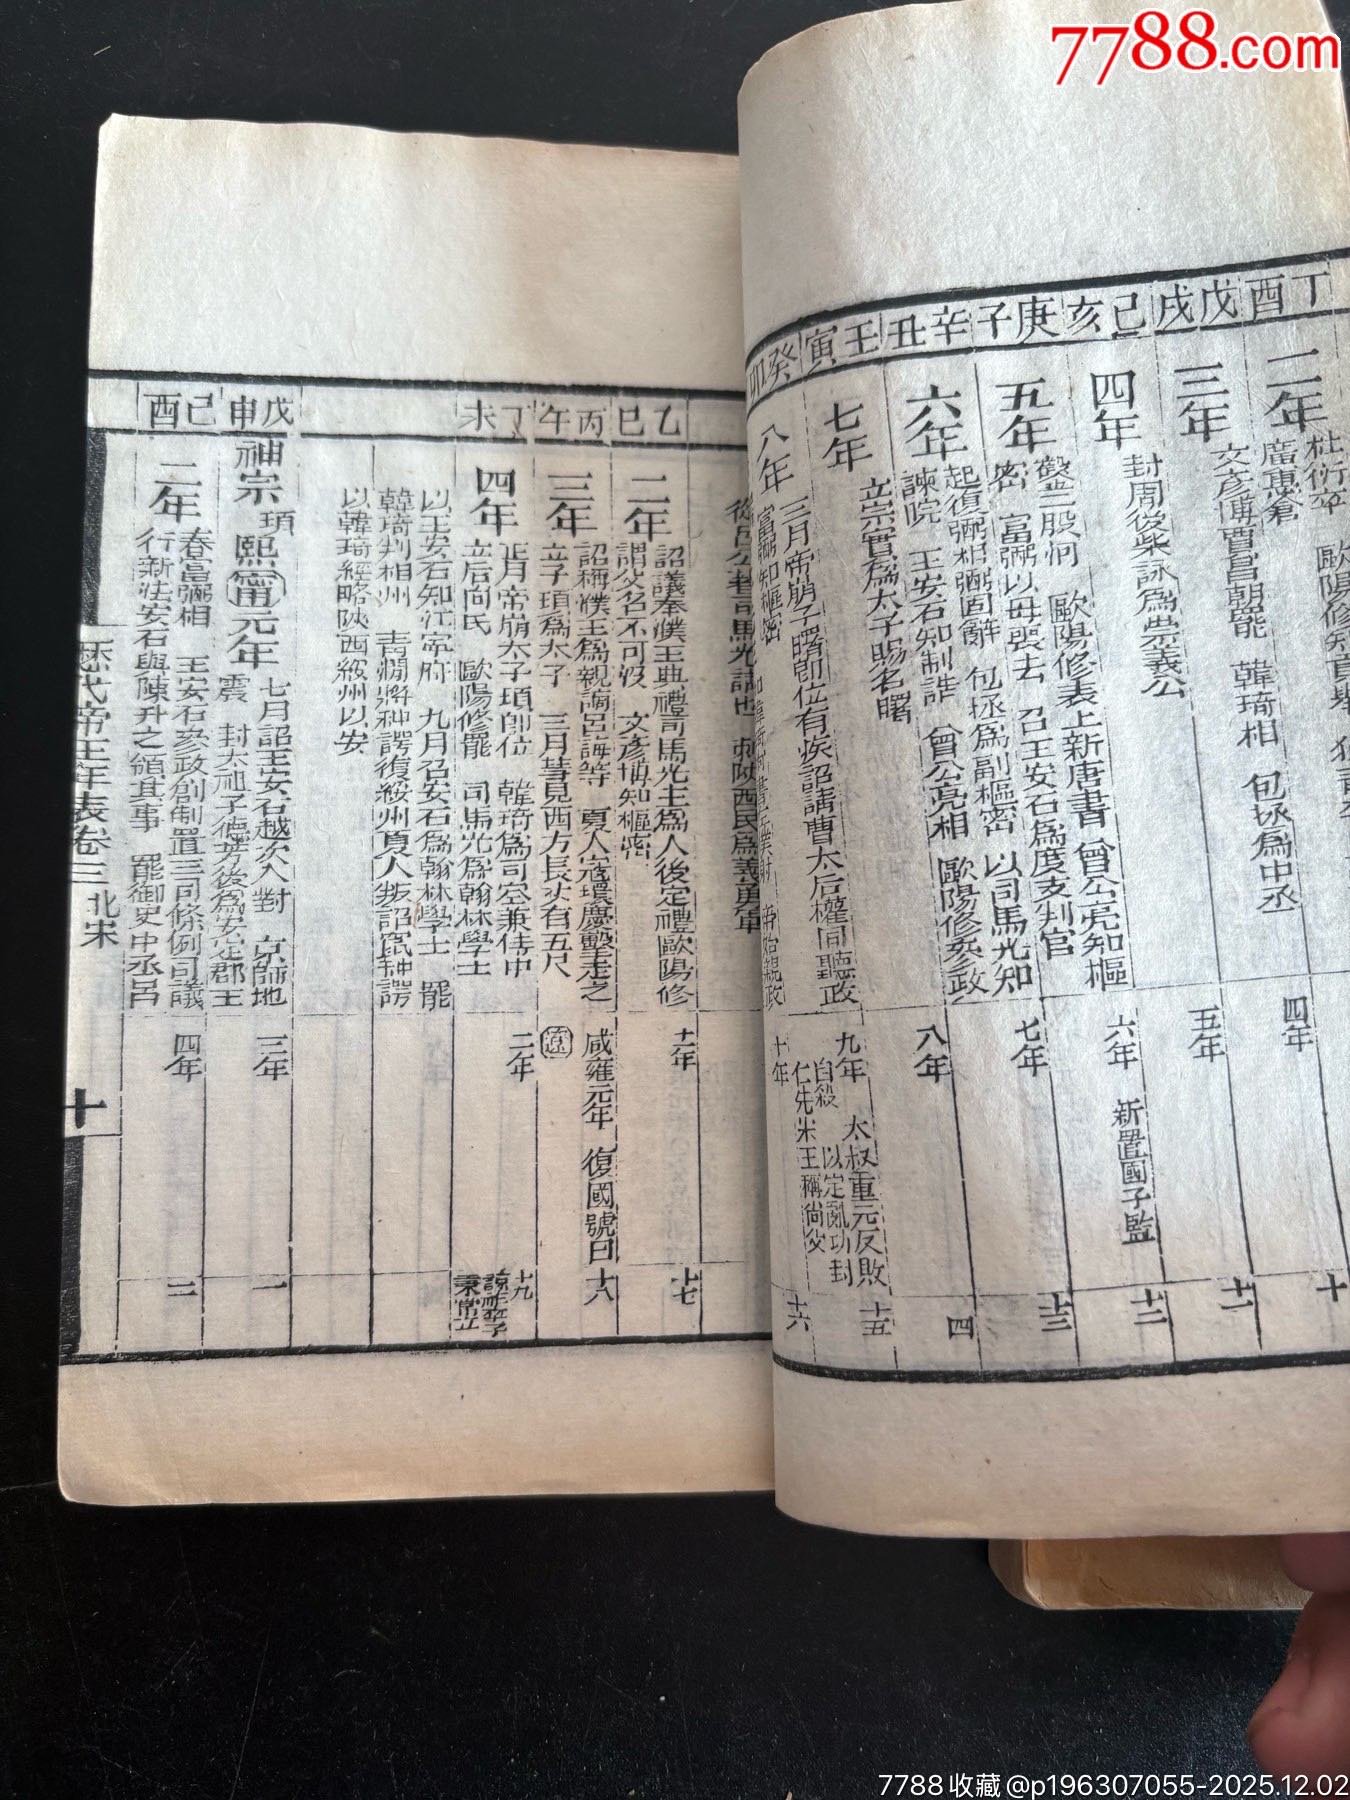 7788.com
丁酉
二年
杜衍卒
廣惠倉
四年
十
戊戌
三年
文彥博賈昌朝罷 韓琦相 包拯爲中丞
五年
十一
己亥
四年
封周後柴詠爲崇義公
六年 新置國子監
十二
庚子
五年
鑿二股河 歐陽修表上新唐書 曾公亮知樞
密 富弼以母喪去 召王安石爲度支判官
七年
十三
辛丑
六年
起復弼相弼固辭 包拯爲副樞密 以司馬光知
諫院 王安石知制誥 曾公亮相 歐陽修參政
八年
四
壬寅
七年
立宗實爲太子賜名曙
九年 太叔重元反敗
自殺 以定亂功封
仁先宋王稱尚父
十五
癸卯
八年
三月帝崩子曙卽位有疾詔請曹太后權同聽政
富弼知樞密
十年
十六
從呂公著司馬光諫也 刺陝西民爲義勇軍
乙巳
二年
詔議奉濮王典禮司馬光主爲人後定禮歐陽修
謂父名不可沒 文彥博知樞密
十一年
十七
丙午
三年
詔稱濮王爲親謫呂誨等 夏人寇環慶擊走之
立子頊爲太子 三月彗見西方長丈有五尺
遼 咸雍元年 復國號曰
十八
丁未
四年
正月帝崩太子頊卽位 韓琦爲司空兼侍中
立后向氏 歐陽修罷 司馬光爲翰林學士
以王安石知江寧府 九月召安石爲翰林學士 罷
韓琦判相州 靑澗將种諤復綏州夏人叛詔竄种諤
以韓琦經略陝西綏州以安
二年
十九
諒祚卒子
秉常立
戊申
神宗 頊 熙甯元年
七月詔王安石越次入對 京師地
震 封太祖子德芳後爲安定郡王
三年
一
己酉
二年
春富弼相 王安石參政創制置三司條例司議
行新法安石與陳升之領其事 罷御史中丞呂
四年
二
歷代帝王年表卷三 北宋
十
7788收藏@p196307055-2025.12.02